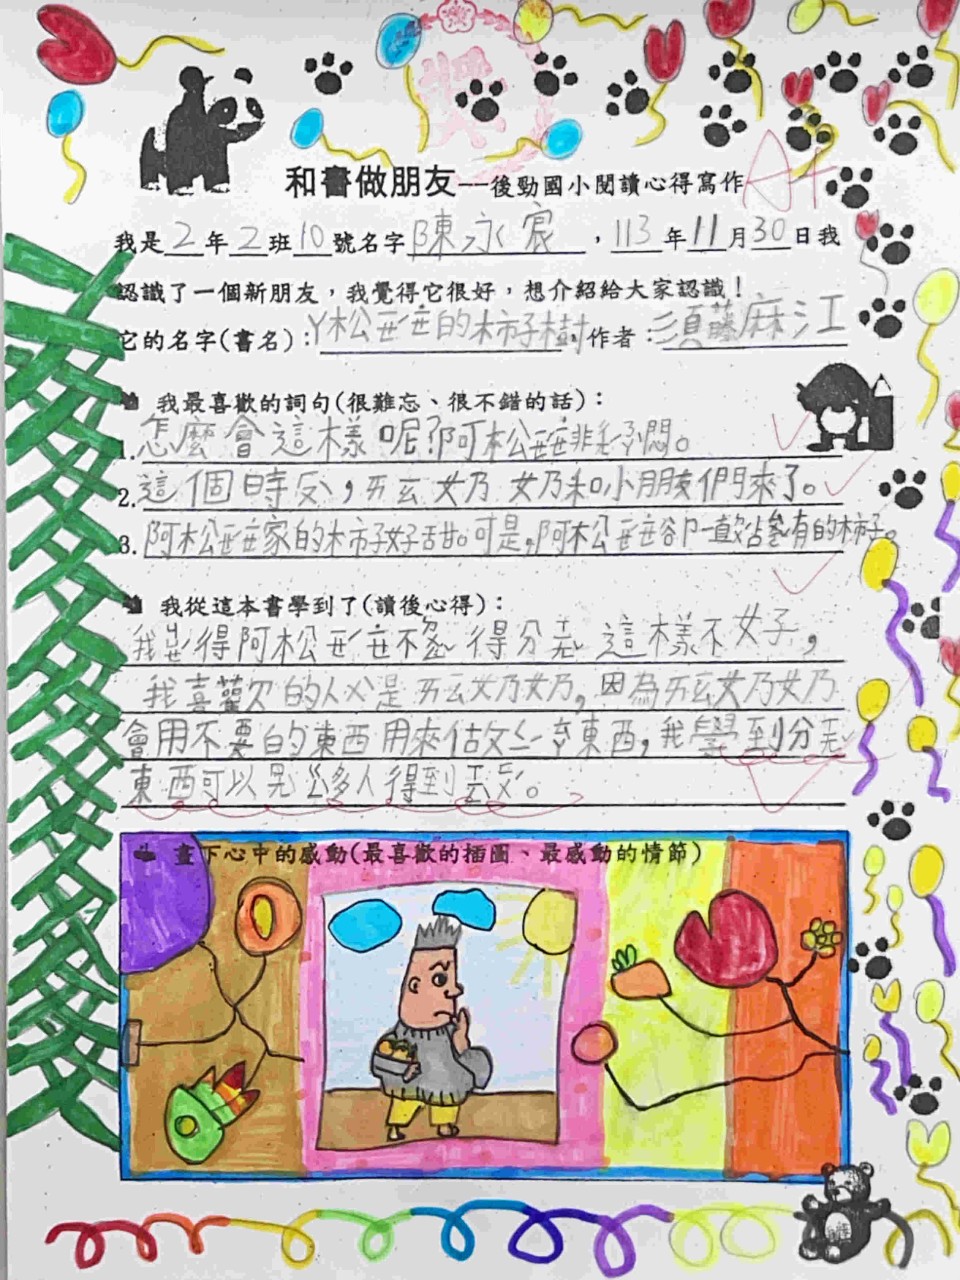 獎
A+
和書做朋友--後勁國小閱讀心得寫作
我是2年2班10號名字陳永宸,113年11月30日我
認識了一個新朋友,我覺得它很好,想介紹給大家認識!
它的名字(書名):ㄚ松爺爺的柿子樹 作者:須藤麻江
我最喜歡的詞句(很難忘、很不錯的話):
1.怎麼會這樣呢?阿松爺爺非ㄔㄤˊ悶。
2.這個時ㄏㄡˋ,ㄞㄠ奶奶和小朋友們來了。
3.阿松爺爺家的柿子好甜。可是,阿松爺爺卻一直欺占所有的柿子。
我從這本書學到了(讀後心得):
我覺得阿松爺爺不懂得分享這樣不好,
我喜歡的人ㄨˋ是ㄞㄠ奶奶,因為ㄞㄠ奶奶
會用不要的東西用來做一些東西,我學到分享
東西可以讓許多人得到
畫下心中的感動(最喜歡的插圖、最感動的情節)